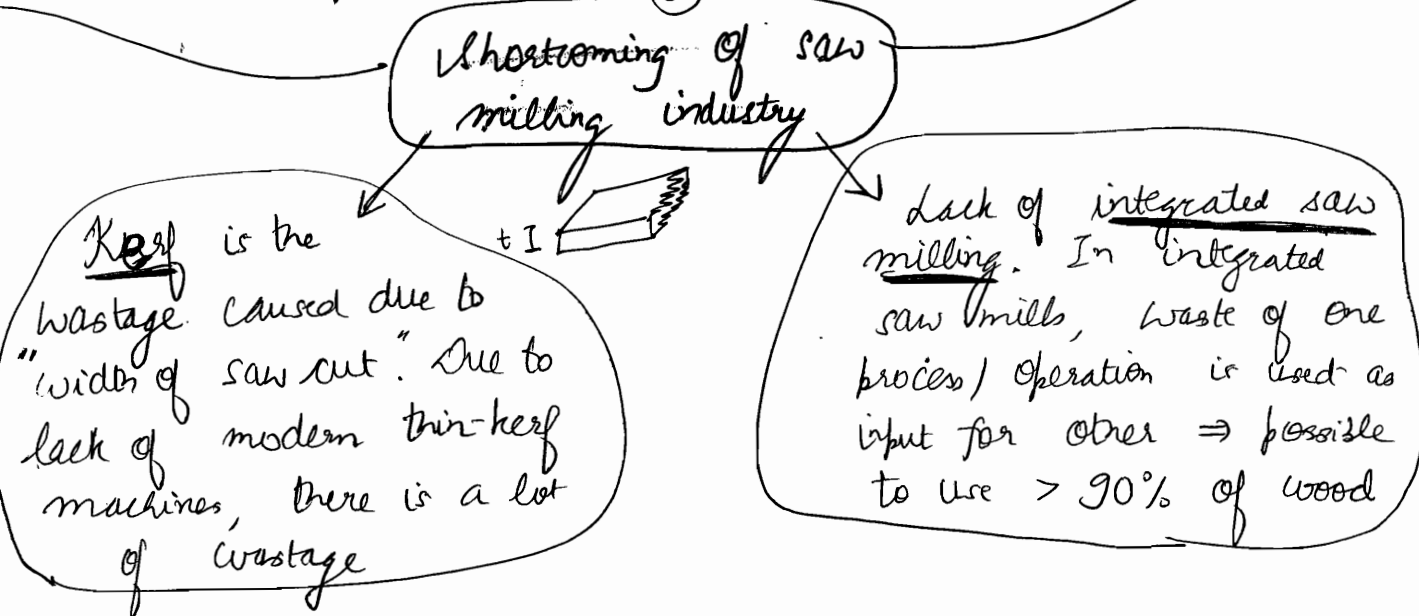 Shortcoming of saw
milling industry
t I
Kerf is the
wastage caused due to
"width of saw cut". Due to
lack of modern thin-kerf
machines, there is a lot
of wastage
Lack of integrated saw
milling. In integrated
saw mills, waste of one
process/ operation is used as
input for other ⇒ possible
to use > 90% of wood